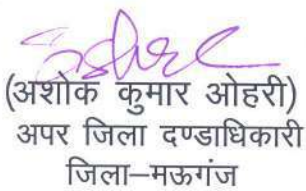 (अशोक कुमार ओहरी)
अपर जिला दण्डाधिकारी
जिला–मऊगंज